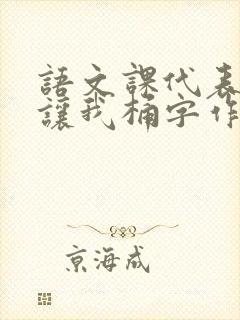 語文課代表
讓我桶字作
京海成